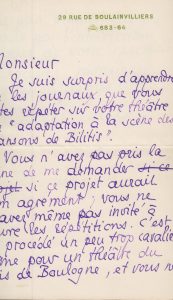 29 RUE DE BOULAINVILLIERS
683-64
Monsieur
Je suis surpris d'apprendre
les journaux, que vous
tes répéter sur votre théâtre
"adaptation à la scène des
ansons de Bilitis".
Vous n'avez pas pris la
ne de me demander si ce
ojet si ce projet aurait
on agrément ; vous ne
avez même pas invité à
vre les répétitions. C'est
procédé un peu trop cavalie
me pour un théâtre du
is de Boulogne, et vous n